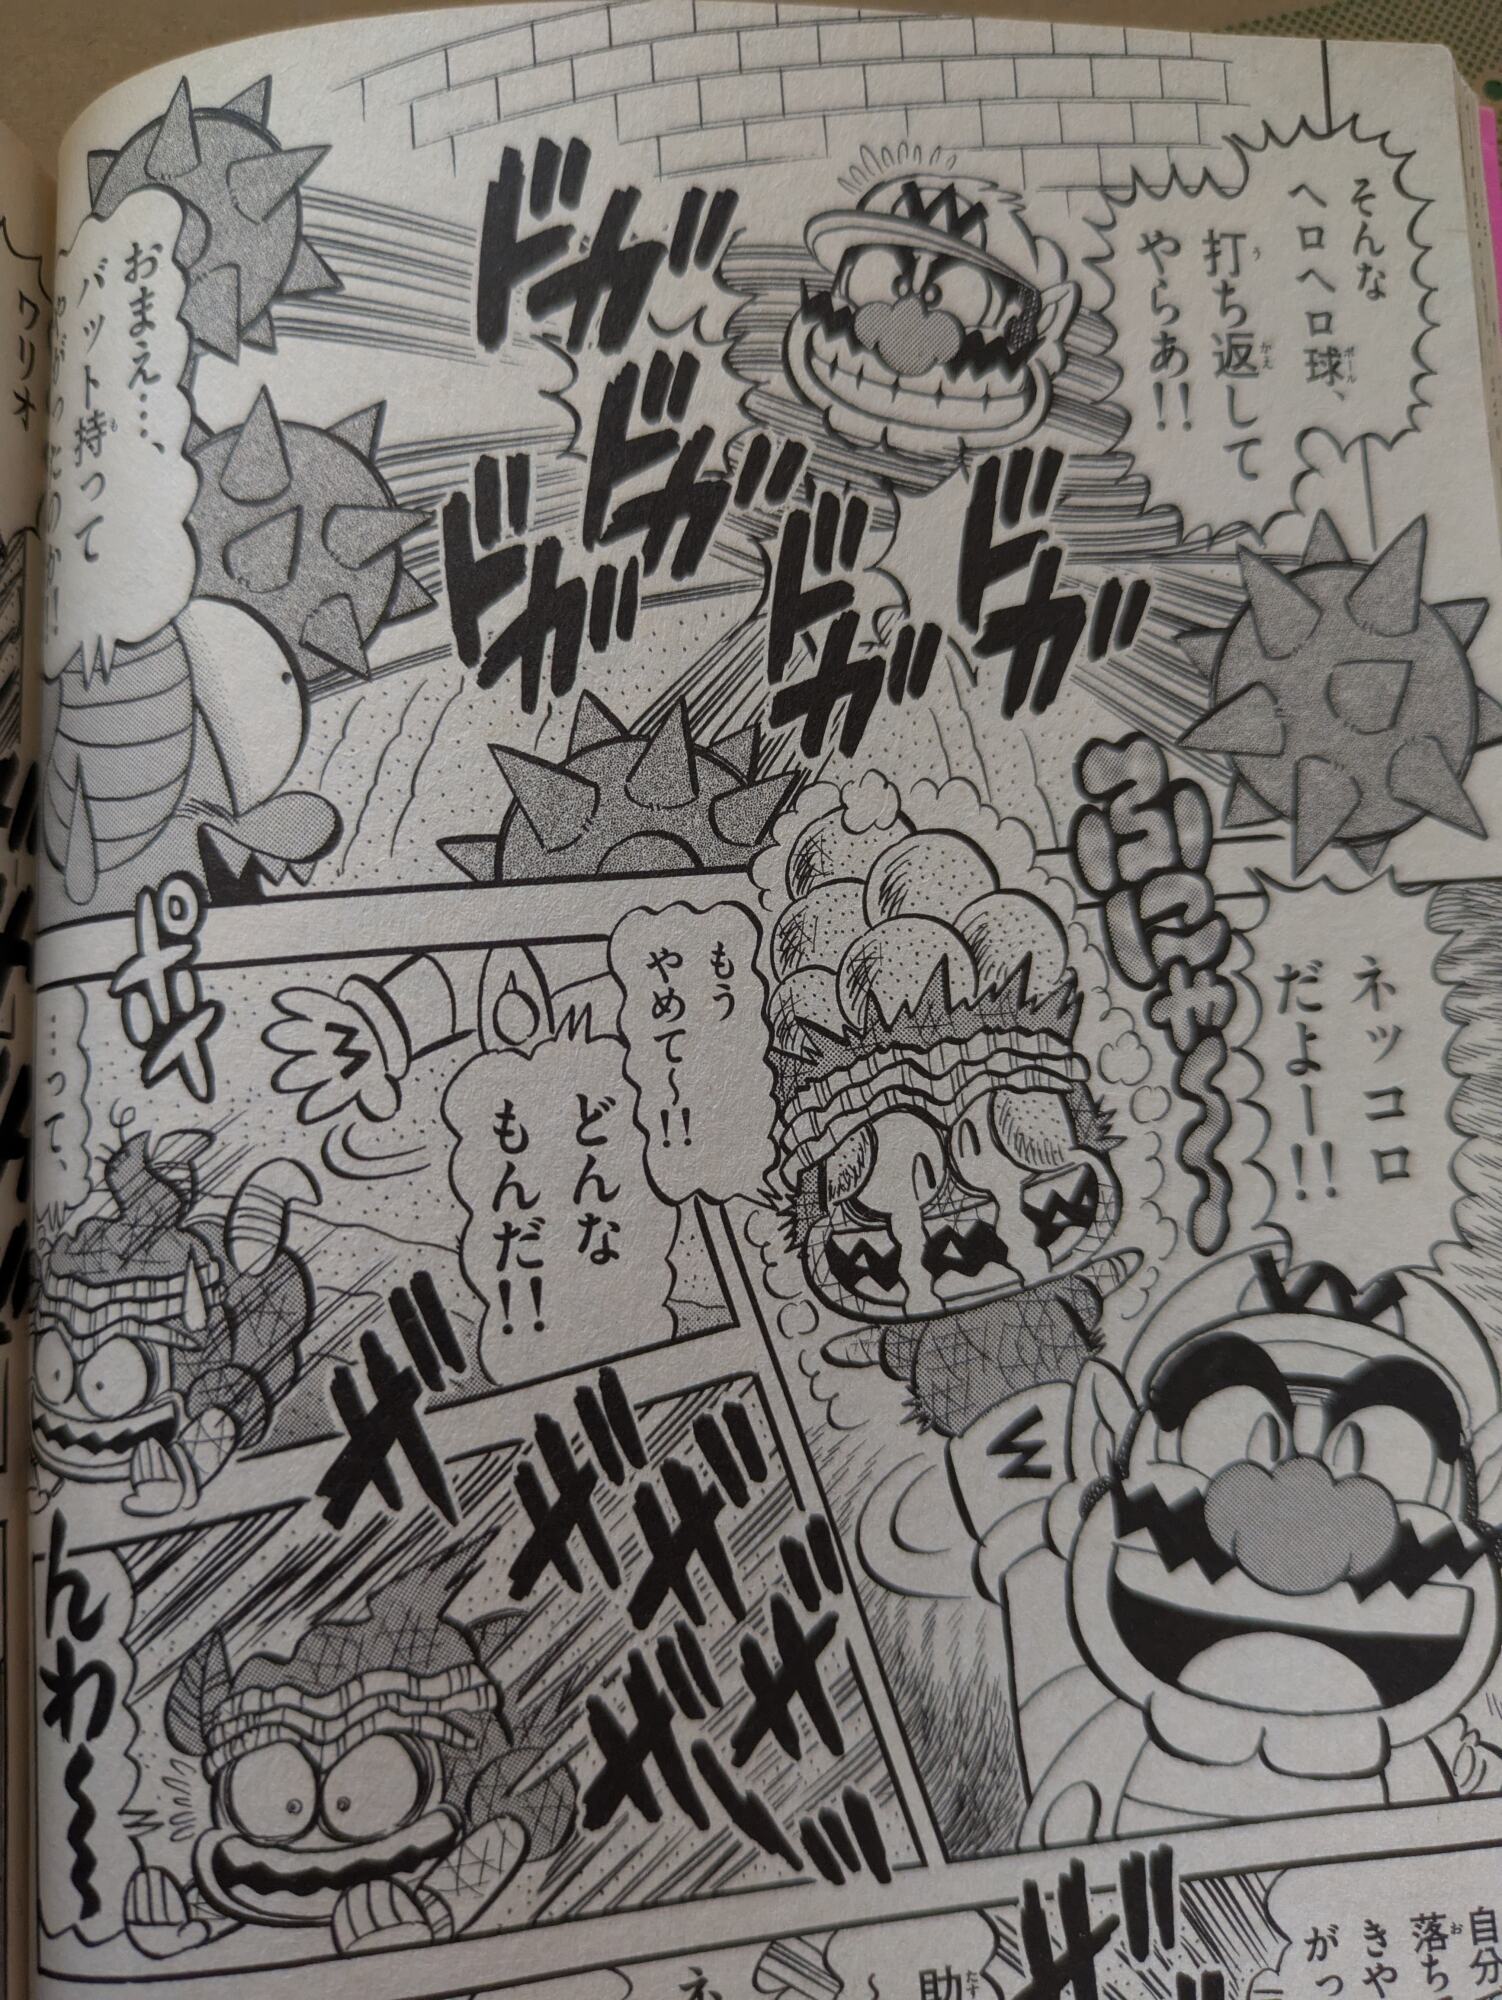 そんな
ヘロヘロ球、
ボール
打ち返して
う
がえ
やらあ!!
ドガ
ドガ
ドガ
ドガ
ドガ
おまえ…、
バット持って
も
ネッコロ
だよー!!
ふにゃ〜
もう
やめて〜!!
どんな
もんだ!!
ポイ
…って、
ザザザザザ
んわ〜
自分
落ち
お
きや
がっ
助
たす
〜
ネ
ザザ
ワリオ